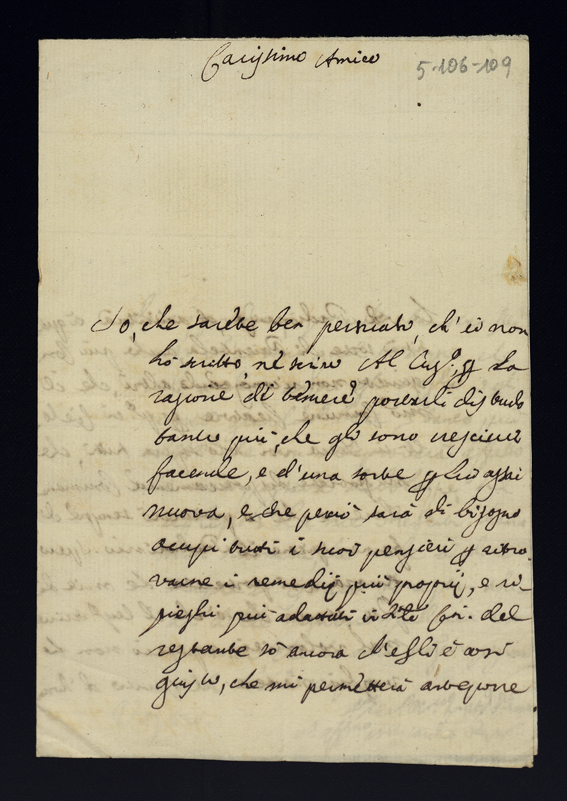 Carissimo Amico
5-106-109
So, che sarebbe ben persuaso, ch' io non
hò scritto, nè scrivo Al Sig.r p La
ragione di temere poterli disturbo
tanto più, che gli sono cresciute
facende, e d'una sorte p lui assai
nuova, e che perciò sarà di bisogno
occupi tutti i suoi pensieri p ritro
varne i remedij più proprij, e ri-
pieghi più adattati in
restante sò ancora ch'egli è così
giusto, che mi permetterà